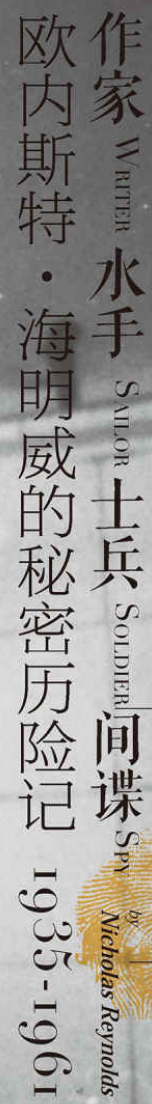 作家 WRITER 水手 SAILOR 士兵 SOLDIER 间谍 SPY
by Nicholas Reynolds
欧内斯特·海明威的秘密历险记 1935-1961